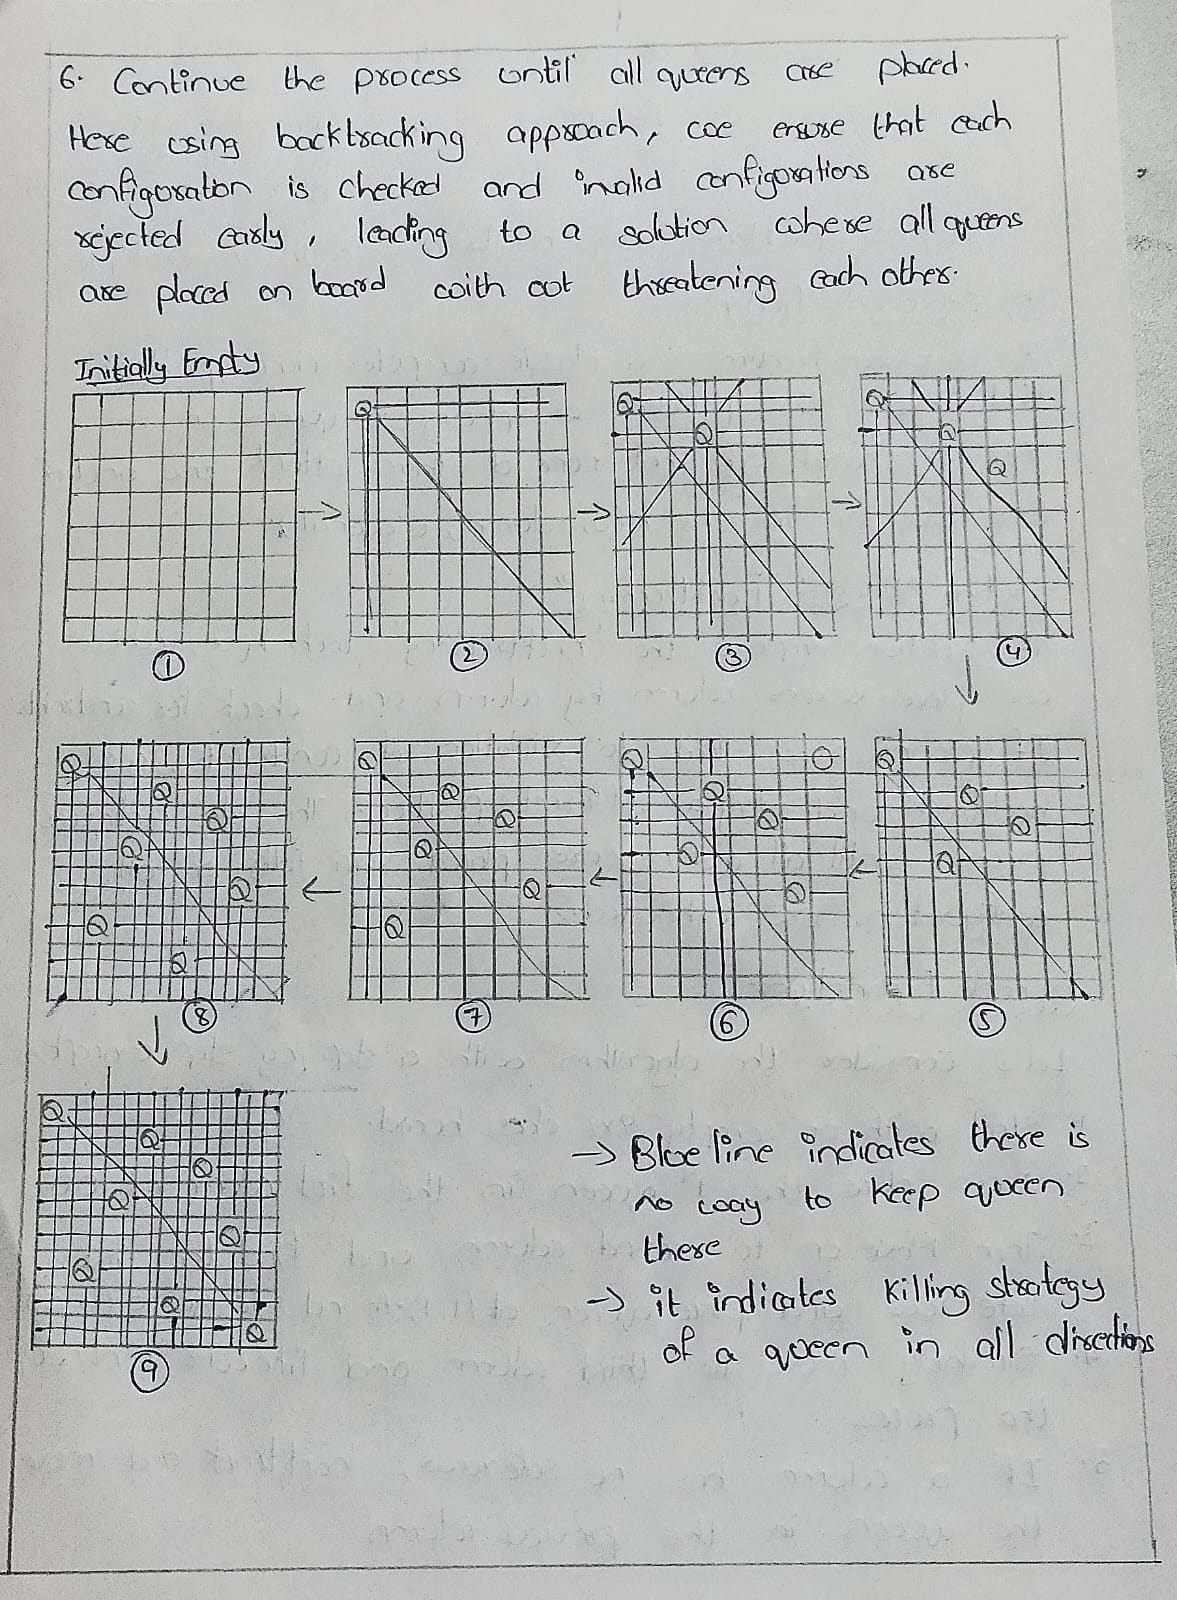 6. Continue the process until all queens are placed.
Here using backtracking approach, we ensure that each
configuration is checked and invalid configurations are
rejected early, leading to a solution where all queens
are placed on board with out threatening each other.
Initially Empty
Q Q Q Q Q Q
1 2 3 4
Q Q Q Q
Q Q Q Q
Q Q Q Q
Q Q Q Q
Q Q Q
Q Q
Q
8 7 6 5
Q
Q
Q
Q
Q
Q
Q
Q
9
→ Blue line indicates there is
no way to keep queen
there
→ it indicates killing strategy
of a queen in all directions